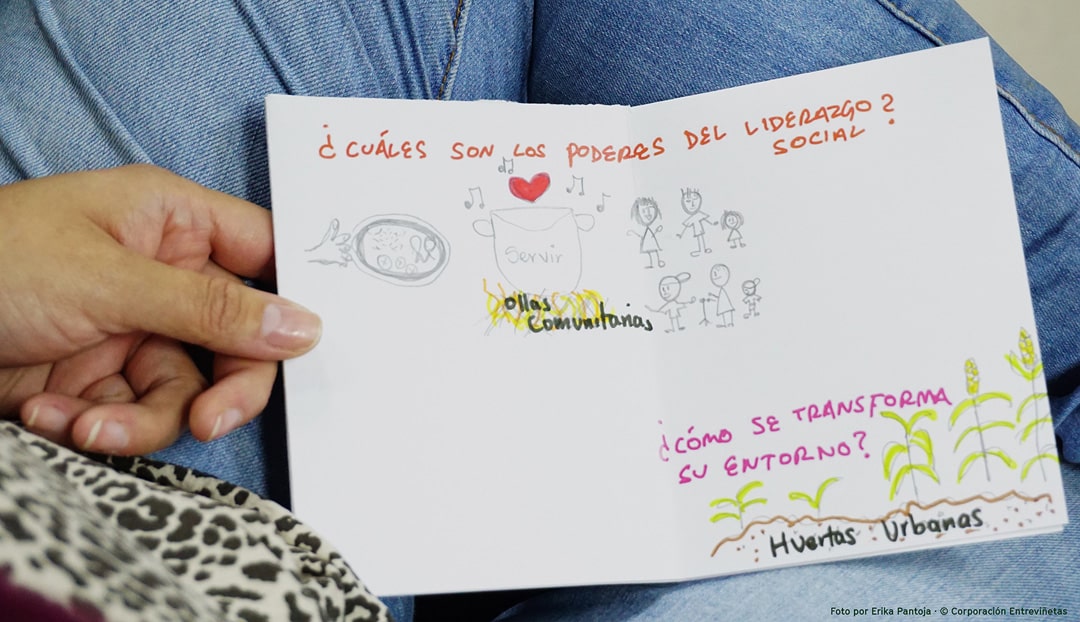 ¿CUÁLES SON LOS PODERES DEL LIDERAZGO
SOCIAL?
Servir
ollas
Comunitarias
¿CÓMO SE TRANSFORMA
SU ENTORNO?
Huertas Urbanas
Foto por Erika Pantoja · © Corporación Entreviñetas